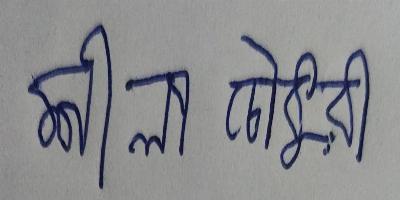 শীলা চৌধুরী